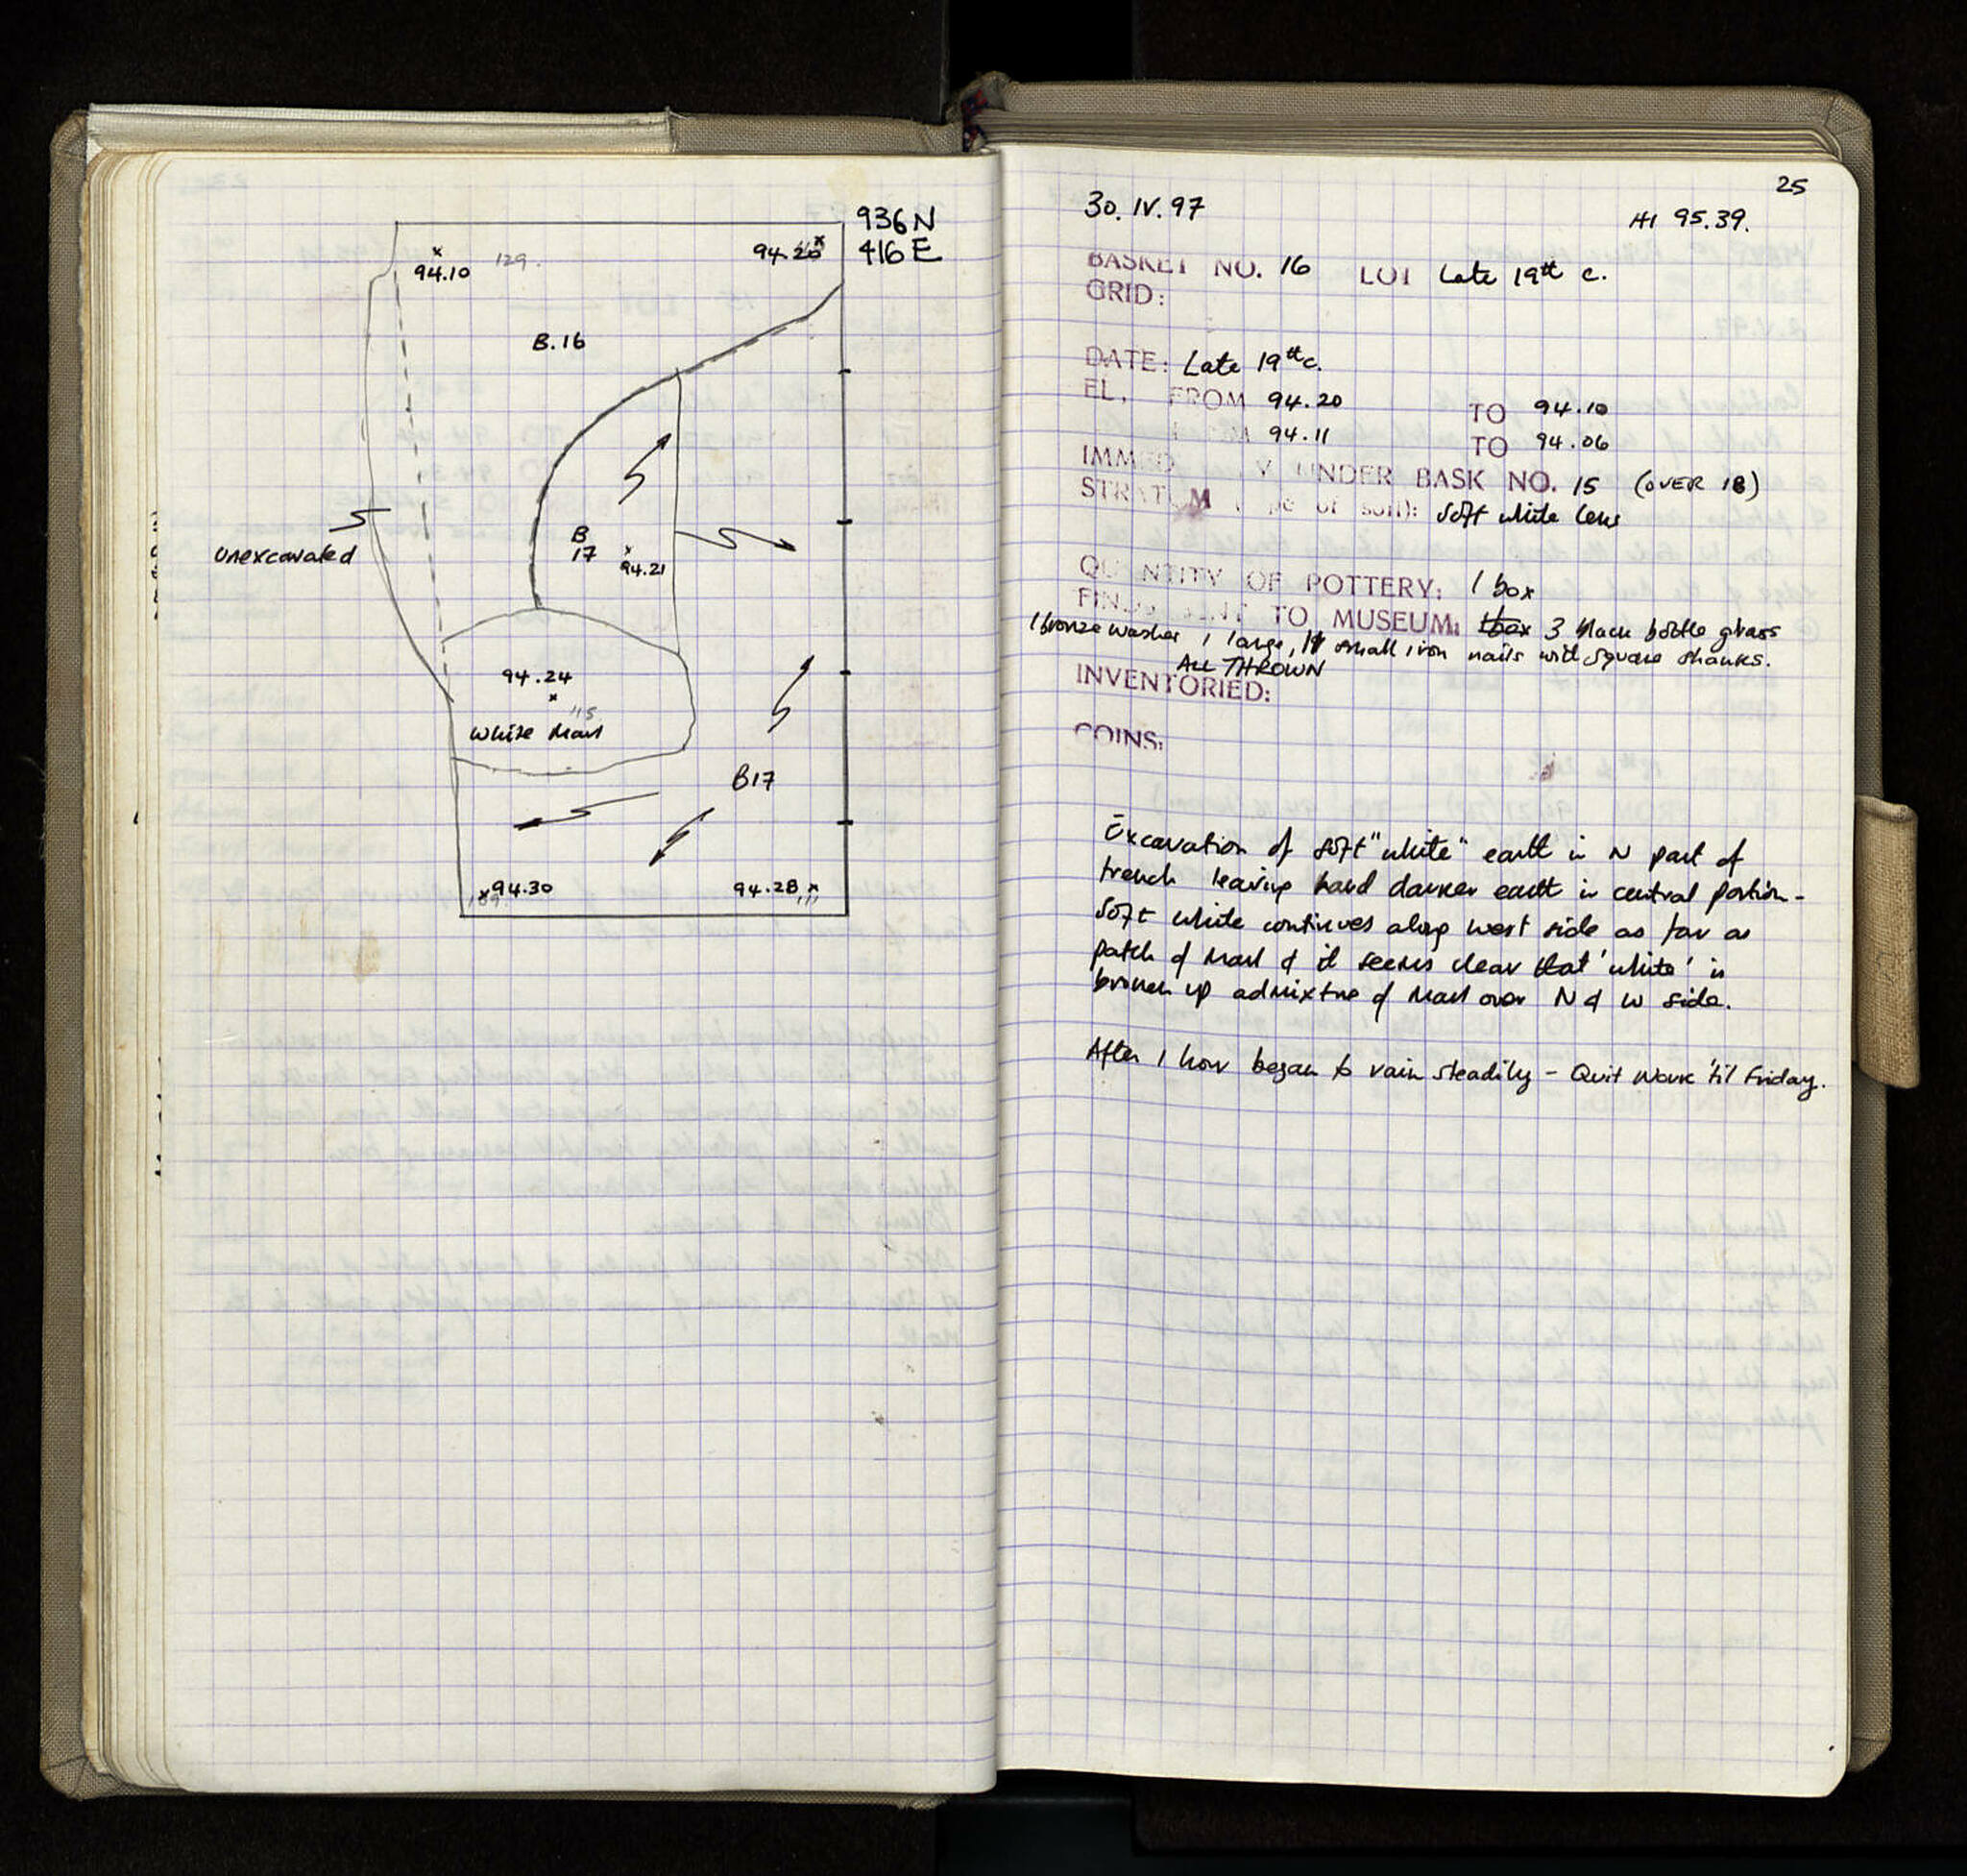 936N
416E
94.10
129.
94.20
B.16
B
17
94.21
unexcavated
94.24
115
White Marl
B17
94.30
109.
94.28
111
25
30. IV. 97
HI 95.39.
BASKET NO. 16 LOT Late 19th c.
GRID:
DATE: Late 19th c.
EL. FROM 94.20 TO 94.10
94.11 TO 94.06
UNDER BASK NO. 15 (OVER 18)
STRATUM soil): Soft white lens
QUANTITY OF POTTERY: 1 box
TO MUSEUM: 1 box 3 black bottle glass
1 bronze washer, 1 large, small iron nails with square shanks.
ALL THROWN
INVENTORIED:
COINS:
Excavation of soft "white" earth in N part of
trench leaving hard darker earth in central portion -
Soft white continues along west side as far as
patch of marl & it seems clear that 'white' is
broken up admixture of marl over N & W side.
After 1 hour began to rain steadily - Quit work 'til Friday.